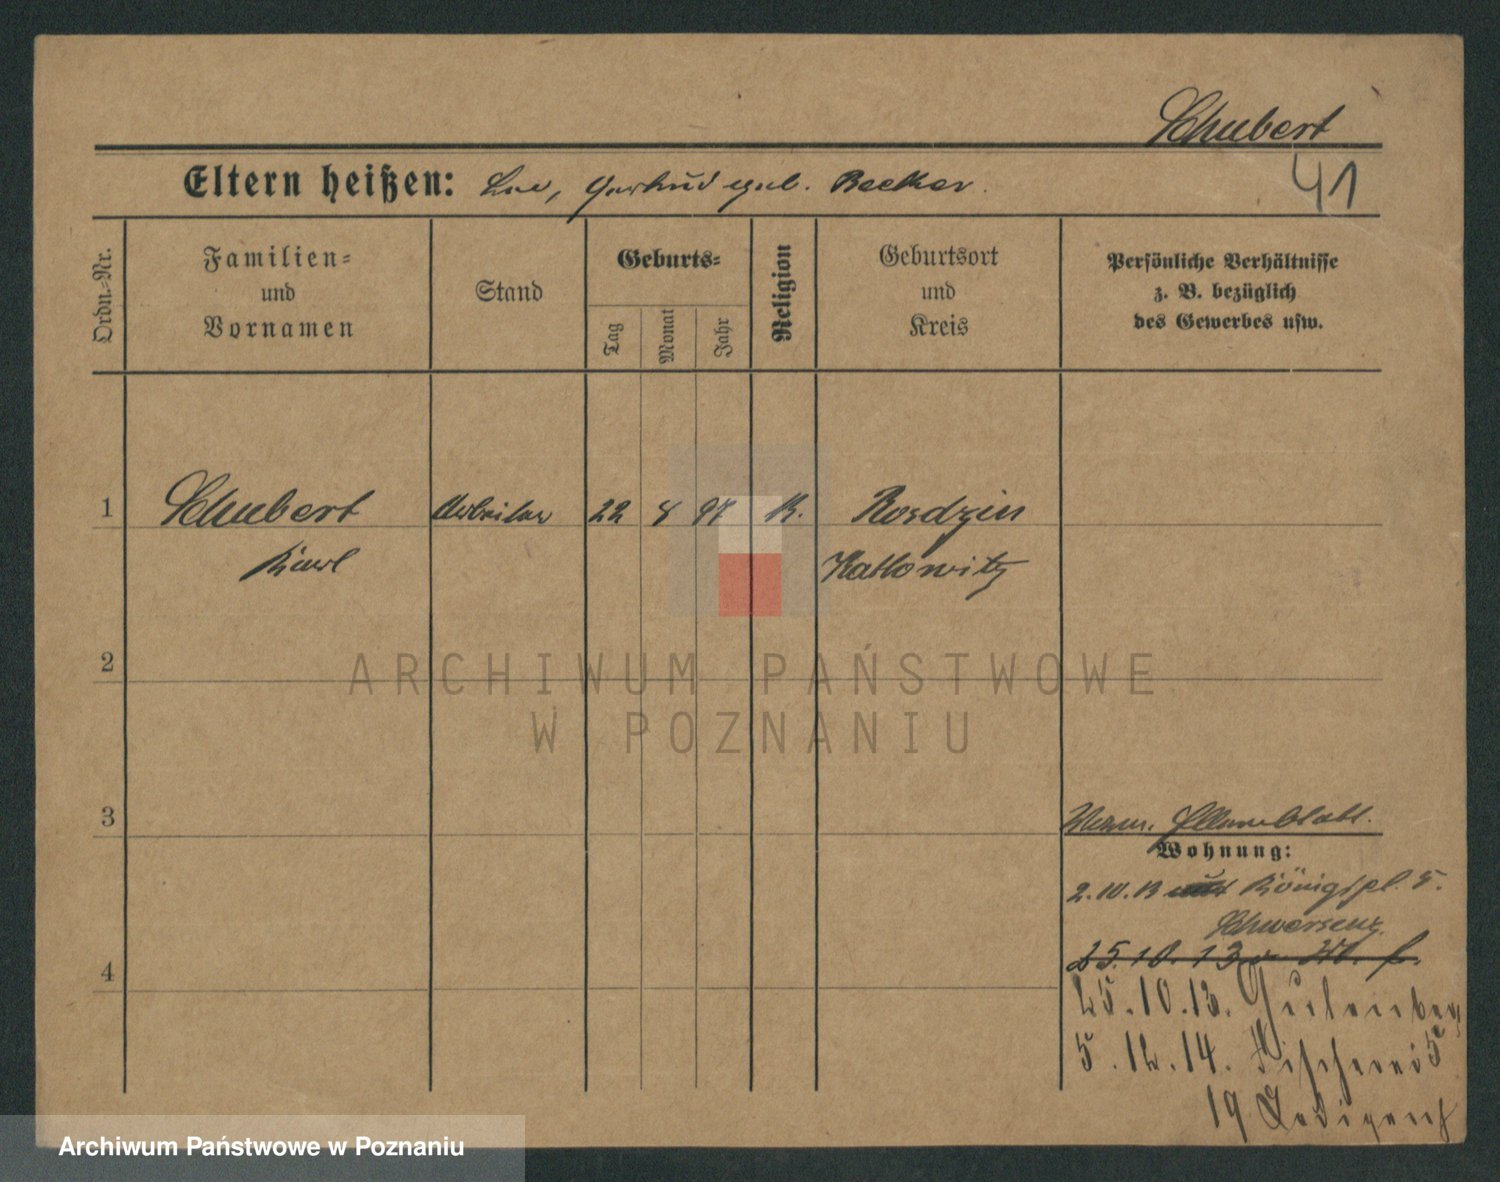 Schubert
Eltern heißen: Leo, Gertrud geb. Becker.
41
Ordn.-Nr.
Familien- und Vornamen
Stand
Geburts-
Tag
Monat
Jahr
Religion
Geburtsort und Kreis
Persönliche Verhältnisse
z. B. bezüglich
des Gewerbes usw.
1 Schubert Arbeiter 22 8 97 K. Rosdzin
Karl Kattowitz
ARCHIWUM PAŃSTWOWE
W POZNANIU
2
3
Wohnung:
2.10.13 Königspl. 5.
Schwersenz.
25.10.13 v.
4
25.10.13. Gutenberg
5.12.14. Fischerei 5
19
Archiwum Państwowe w Poznaniu